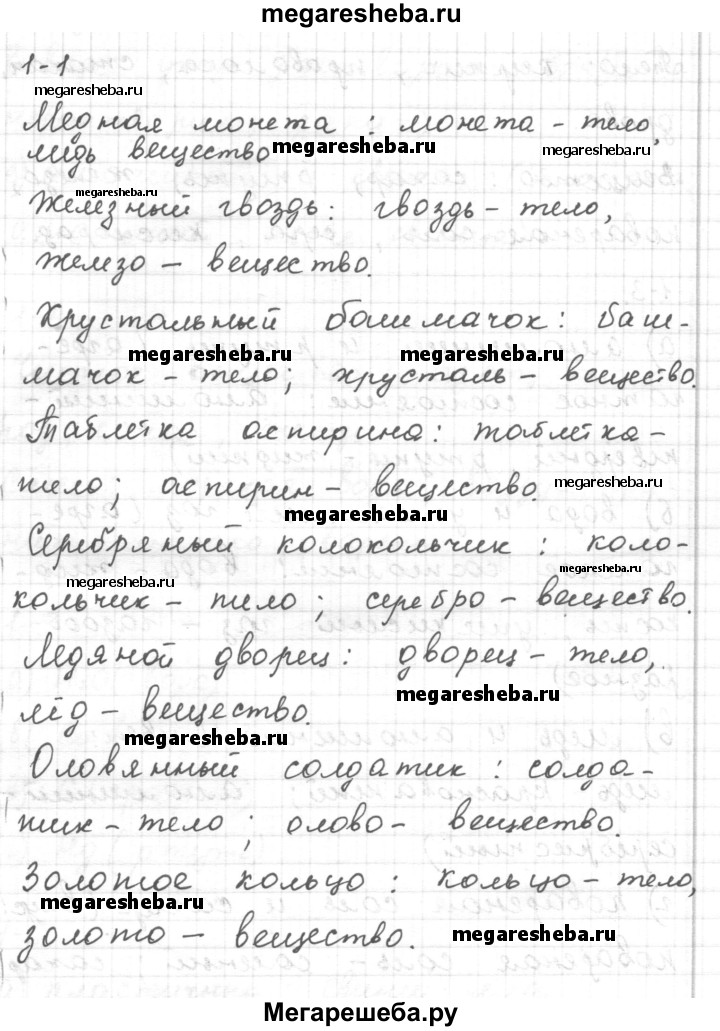 megaresheba.ru
1-1
megaresheba.ru
Медная монета : монета - тело,
медь вещество megaresheba.ru megaresheba.ru
megaresheba.ru
Железный гвоздь: гвоздь - тело,
железо - вещество.
Хрустальный башмачок: баш-
megaresheba.ru megaresheba.ru
мачок - тело; хрусталь - вещество.
Таблетка аспирина: таблетка -
тело; аспирин - вещество. megaresheba.ru
megaresheba.ru
Серебряный колокольчик : коло-
megaresheba.ru megaresheba.ru
кольчик - тело ; серебро - вещество.
Ледяной дворец: дворец - тело,
megaresheba.ru
лёд - вещество.
megaresheba.ru
Оловянный солдатик : солда-
тик - тело ; олово - вещество.
Золотое кольцо : кольцо - тело,
megaresheba.ru
золото - вещество. megaresheba.ru
Мегарешеба.ру